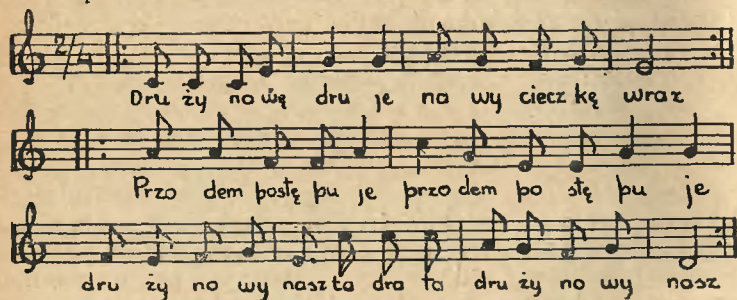 2/4
Dru ży no wę dru je na wy ciecz kę wraz
Przo dem postę pu je przo dem po stę pu je
dru ży no wy nasz ta dra ta dru ży no wy nasz